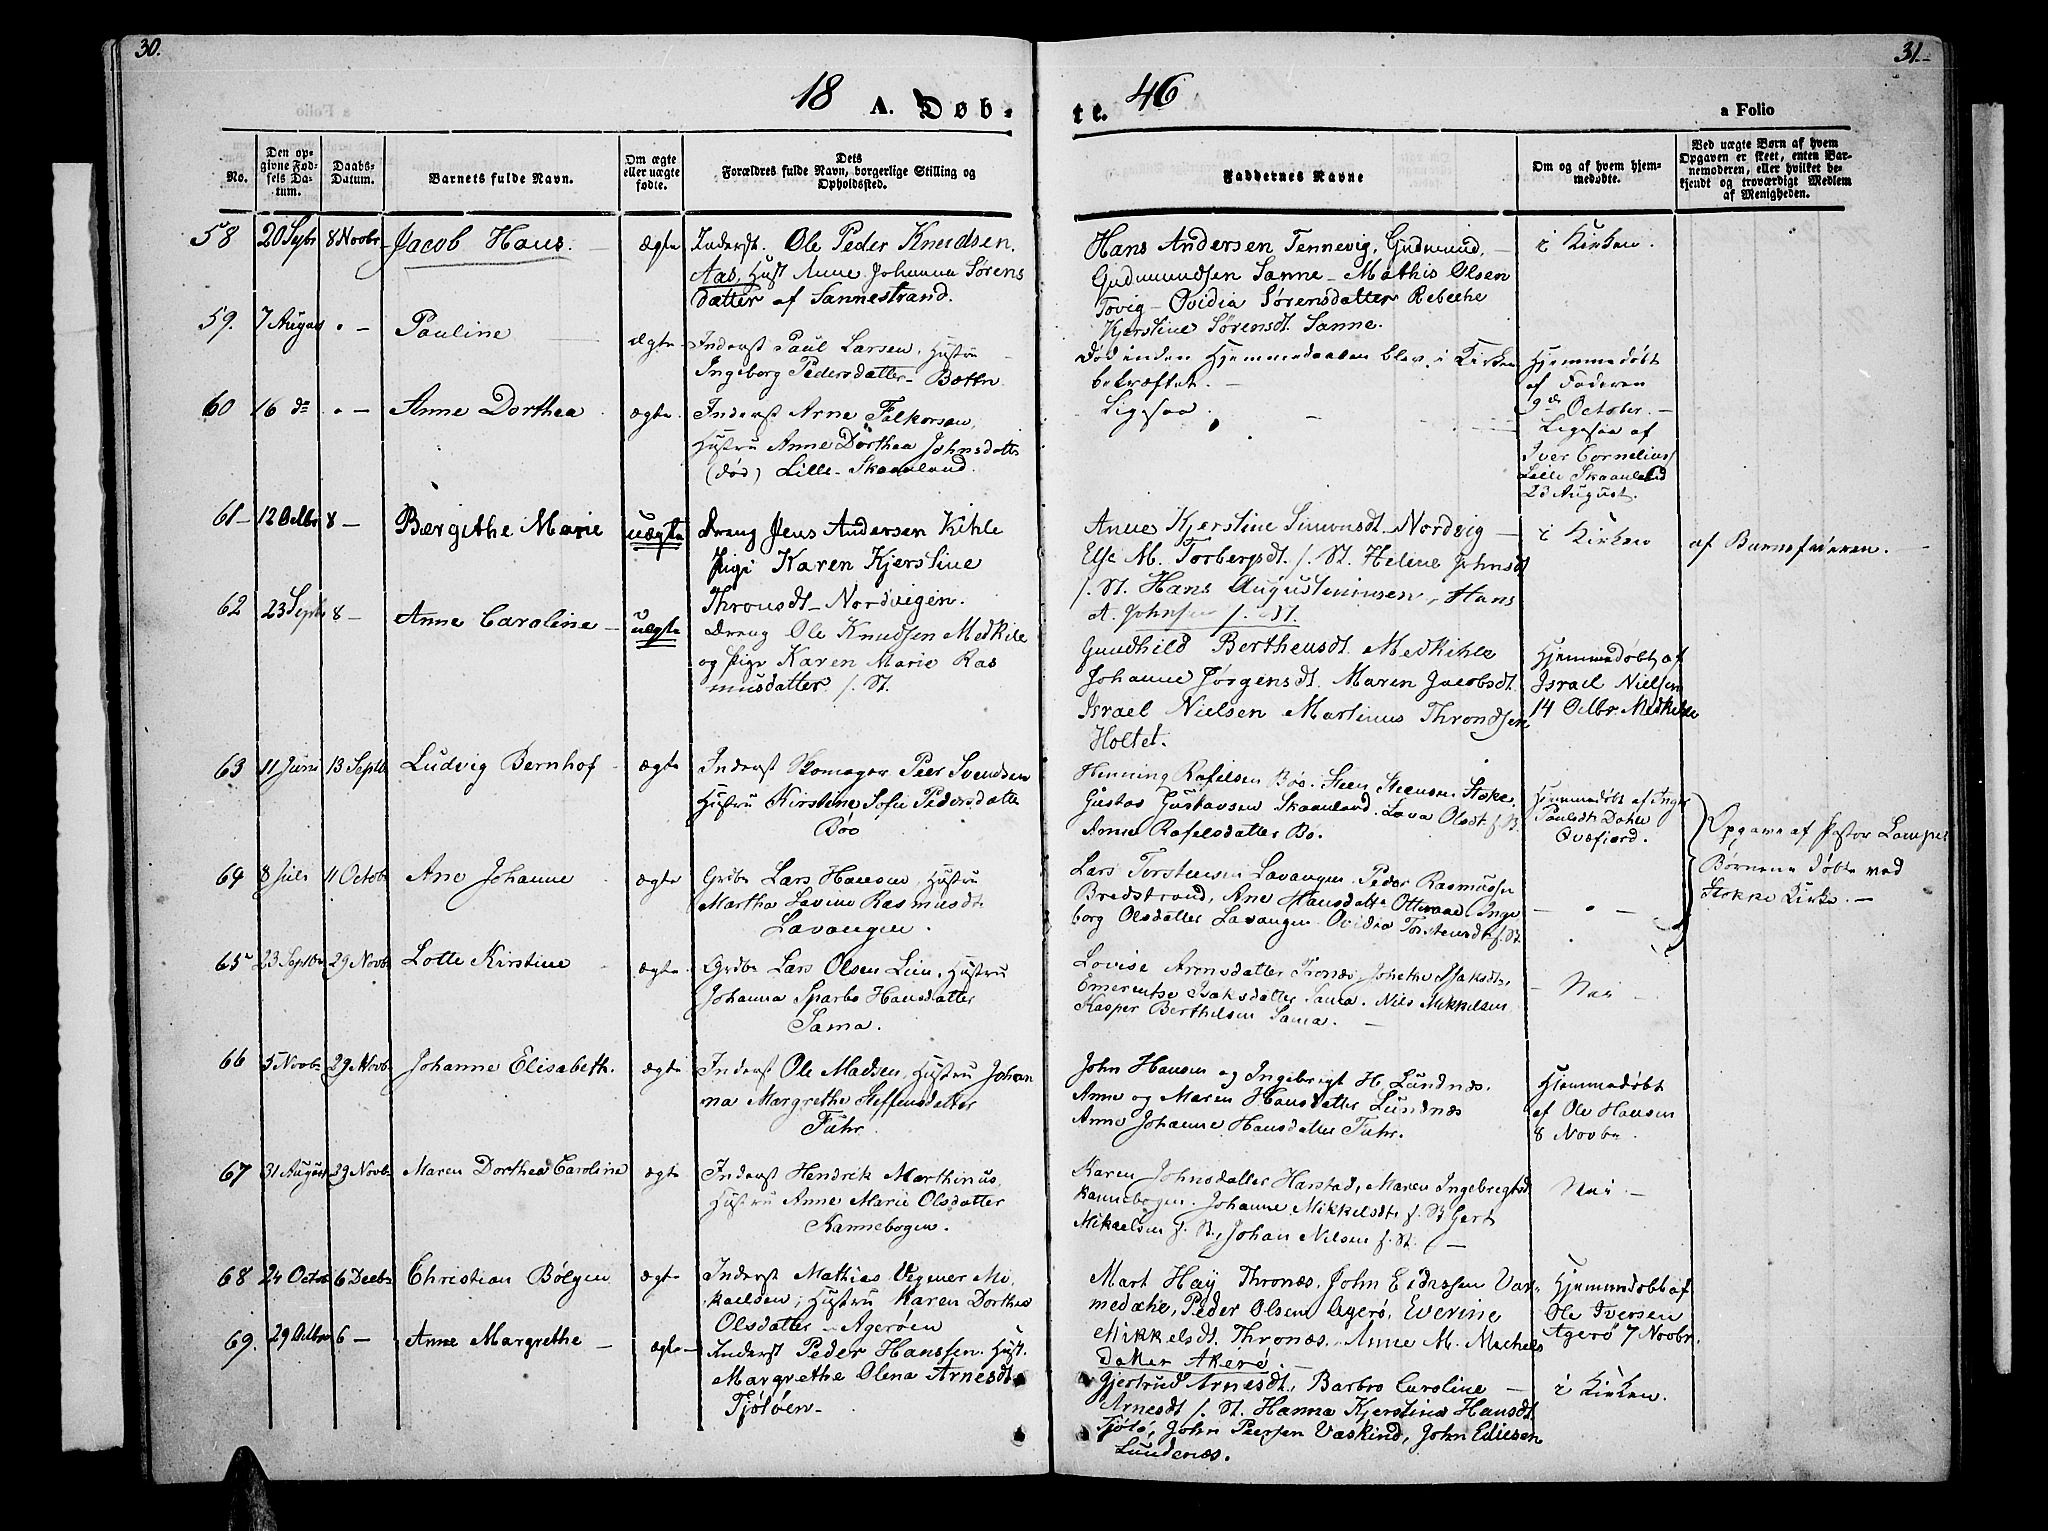 30.
31.
18 46
A. Døb-
te.
a Folio
No.
Den op-
givne Fød-
sels Da-
tum.
Daabs-
Datum.
Barnets fulde Navn.
Om ægte
eller uægte
fødte.
Dets
Forældres fulde Navn, borgerlige Stilling og
Opholdssted.
Faddernes Navne
Om og af hvem hjem-
medøbte.
Ved uægte Børn af hvem
Opgaven er skeet, enten Bar-
nemoderen, eller hvilket be-
kjendt og troværdigt Medlem
af Menigheden.
58 20 Septbr 8 Novbr Jacob Hans. ægte
Inderst. Ole Peder Knudsen.
Aas, Hust Anne Johanna Sørens
datter af Sannestrand.
Hans Andersen Tennevig, Gudmund
Gudmundsen Sanne - Mathis Olsen
Tovig - Ovidia Sørensdatter Rebecke
Kjerstine Sørensdt. Sanne.
i Kirken.
59. 7 August " - Pauline ægte
Inderst Paul Larsen, Hustru
Ingeborg Pedersdatter - 
Død inden Hjemmedaaben blev i Kirken
bekræftet. -
Hjemmedøbt
af Faderen
9de October. -
60 16 do " - Anne Dorthea ægte
Inderst Arne Falkorsen,
Hustru Anne Dorthea Johnsdatter
(død) Lille-Skaanland.
Ligesaa.
Ligesaa af
Iver Cornelius
Lille Skaanland
23 August.
61 - 12 Octbr 8 - Bergithe Marie uægte
Dreng Jens Andersen Kihle
Pige Karen Kjerstine
Thronsdt - Nordvigen.
Anne Kjerstine Simonsdt Nordvig -
Else M. Torbergsdt. f. St. Helene Johnsdt
f. St. Hans Augustinussen, Hans
A. Johnsen f. St.
i Kirken
af Barnefaderen. -
62 23 Septb 8 - Anne Caroline - uægte
Dreng Ole Knudsen Medkile
og Pige Karen Marie Ras
musdatter f. St.
Gundhild Bertheusdt. Medkihle
Johanne Jørgensdt. Maren Jacobsdt
Israel Nielsen Martinus Throndsen
Holtet.
Hjemmedøbt af
Israel Nielsen
14 Octbr Medkihle
63 11 Juni 13 Septb Ludvig Bernhof ægte
Inderst Skomager Peer Svendsen
Hustru Kirstine Sofie Pedersdatter
Bøo
Henning Rafelsen Bø. Steen Steensen Stokke,
Gustav Gustavsen Skaanland. Lava Olsdt f. St.
Anne Rafelsdatter Bø.
Hjemmedøbt af Inger
Paulsdt Dahle
Qvæfjord.
Opgave af Pastor
Børnene døbte ved
Stokke Kirke. -
64 8 Juli 11 Octob Ane Johanne ægte
Grdbr Lars Hansen, Hustru
Martha Lavine Rasmusdt
Lavangen.
Lars Torstensen Lavangen. Peder Rasmussen
Bredstrand, Ane Hansdatter Inge
borg Olsdatter Lavangen. Ovidia Torstensdt f. St.
- " -
65 23 Septbr 29 Novbr Lotte Kirstine ægte
Grdbr Lars Olsen Lien, Hustru
Johanna Sparbo Hansdatter
Sama.
Lovise Aronsdatter Tronæs, Johette Isaksdtr,
Emerentse Isaksdatter Sama. Nils Mikkelsen
Kasper Berthelsen Sama. -
- Nei -
66 5 Novbr 29 Novb Johanne Elisabeth. ægte
Inderst Ole Madsen, Hustru Johan
na Margrethe Steffensdatter
Fuhr.
John Hansen og Ingebrigt H. Lundnæs.
Anne og Maren Hansdatter Lundnæs
Anne Johanne Hansdatter Fuhr.
Hjemmedøbt
af Ole Hansen
8 Novbr.
67 31 August 29 Novb Maren Dorthea Caroline ægte
Inderst Hendrik Marthinus,
Hustru Anne Marie Olsdatter
Kannebogen.
Karen Johnsdatter Harstad, Maren Ingebrigtsdt
Kannebogen. Johanne Mikkelsdtr f. St Gert
Mikaelsen f. St., Johan Nilsen f. St. -
Nei -
68 24 Octob 6 Decbr Christian Bølgen ægte
Inderst Mathias Vegner Mi-
kaelsen, Hustru Karen Dorthea
Olsdatter Agerøen
Mart Hay Thronæs, John Var-
medæhe, Peder Olsen Agerø, Everine
Mikkelsdt. Thronæs. Anne M. Michels
datter Akerø. -
Hjemmedøbt af
Ole Iversen
Agerø 7 Novbr.
69. 29 Octbr 6 - Anne Margrethe - ægte -
Inderst Peder Hanssen. Hust.
Margrethe Olena Arnesdt.
Tjøløen -
Gjertrud Arnesdt., Barbro Caroline -
Arnesdt f. St. Hanna Kjerstina Hansdt
Tjøtø, John Peersen Væskind, John Ediesen
Lundenæs.
i Kirken.